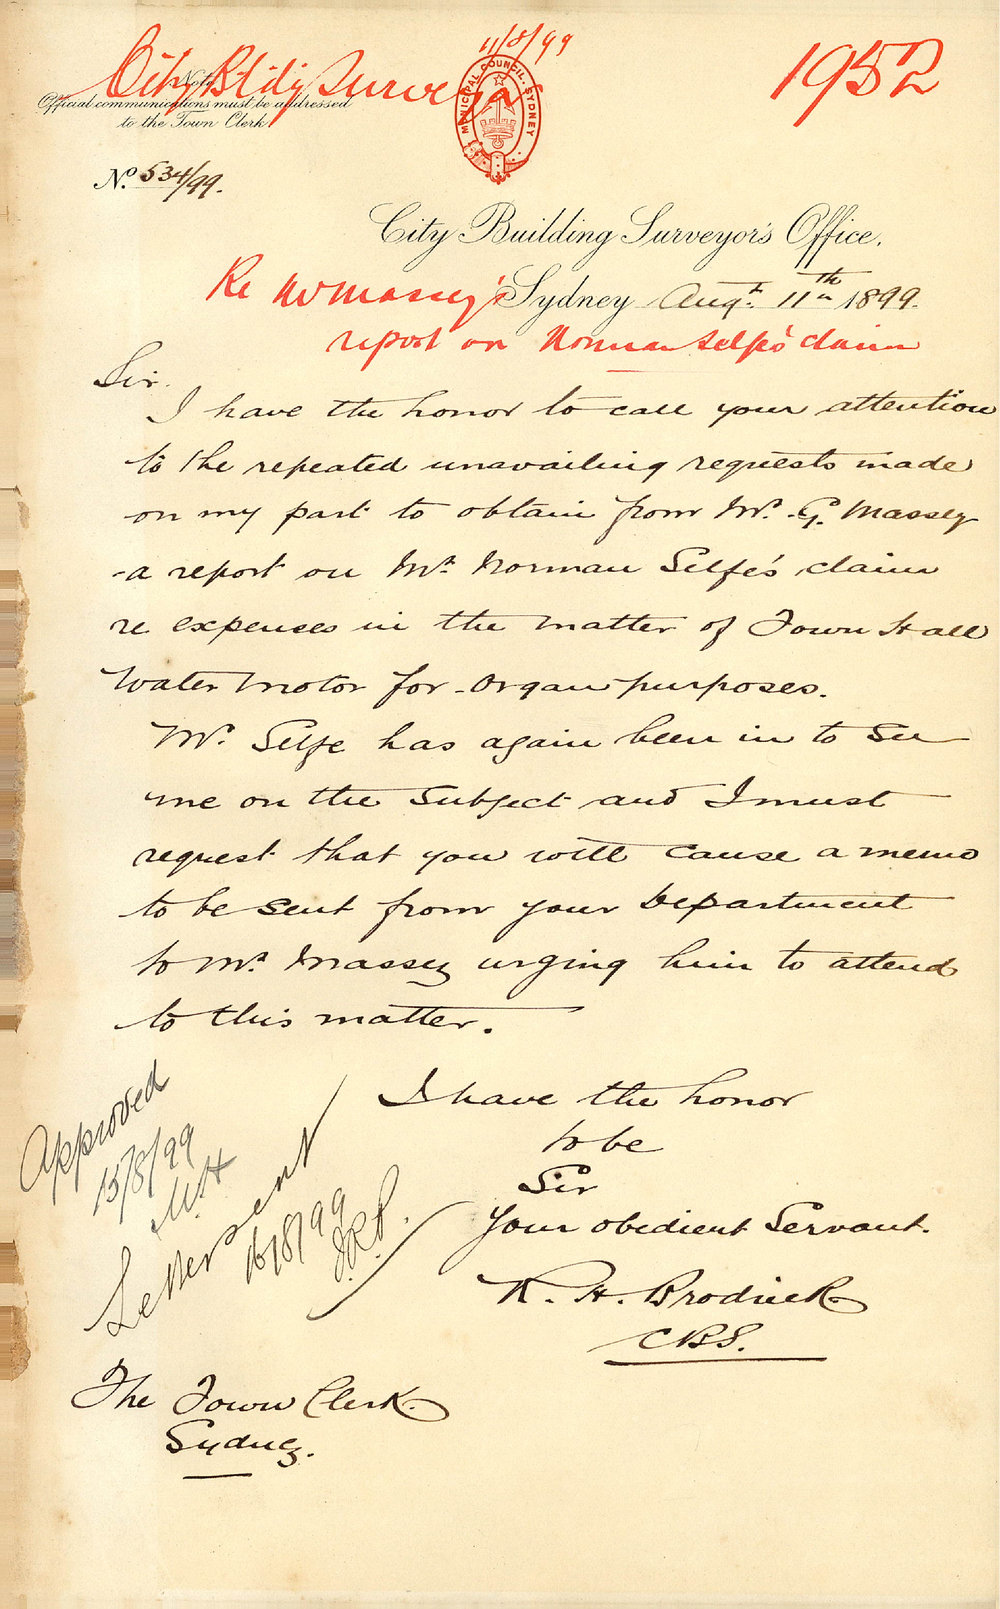 11/8/99
City Bldg Surveyor
1952
Note
Official communications must be addressed
to the Town Clerk
MUNICIPAL COUNCIL. SYDNEY
No. 534/99.
City Building Surveyor's Office.
Sydney Augt. 11th 1899.
Re Mr Massey's
report on Norman Selfe's claim
Sir.
I have the honor to call your attention
to the repeated unavailing requests made
on my part to obtain from Mr. G. Massey
a report on Mr. Norman Selfe's claim
re expenses in the matter of Town Hall
Water Motor for Organ purposes.
Mr. Selfe has again been in to see
me on the subject and I must
request that you will cause a memo
to be sent from your Department
to Mr. Massey urging him to attend
to this matter.
I have the honor
to be
Sir
Your obedient Servant.
R. H. Brodrick
CBS.
Approved
15/8/99
Letter sent
16/8/99
The Town Clerk.
Sydney.